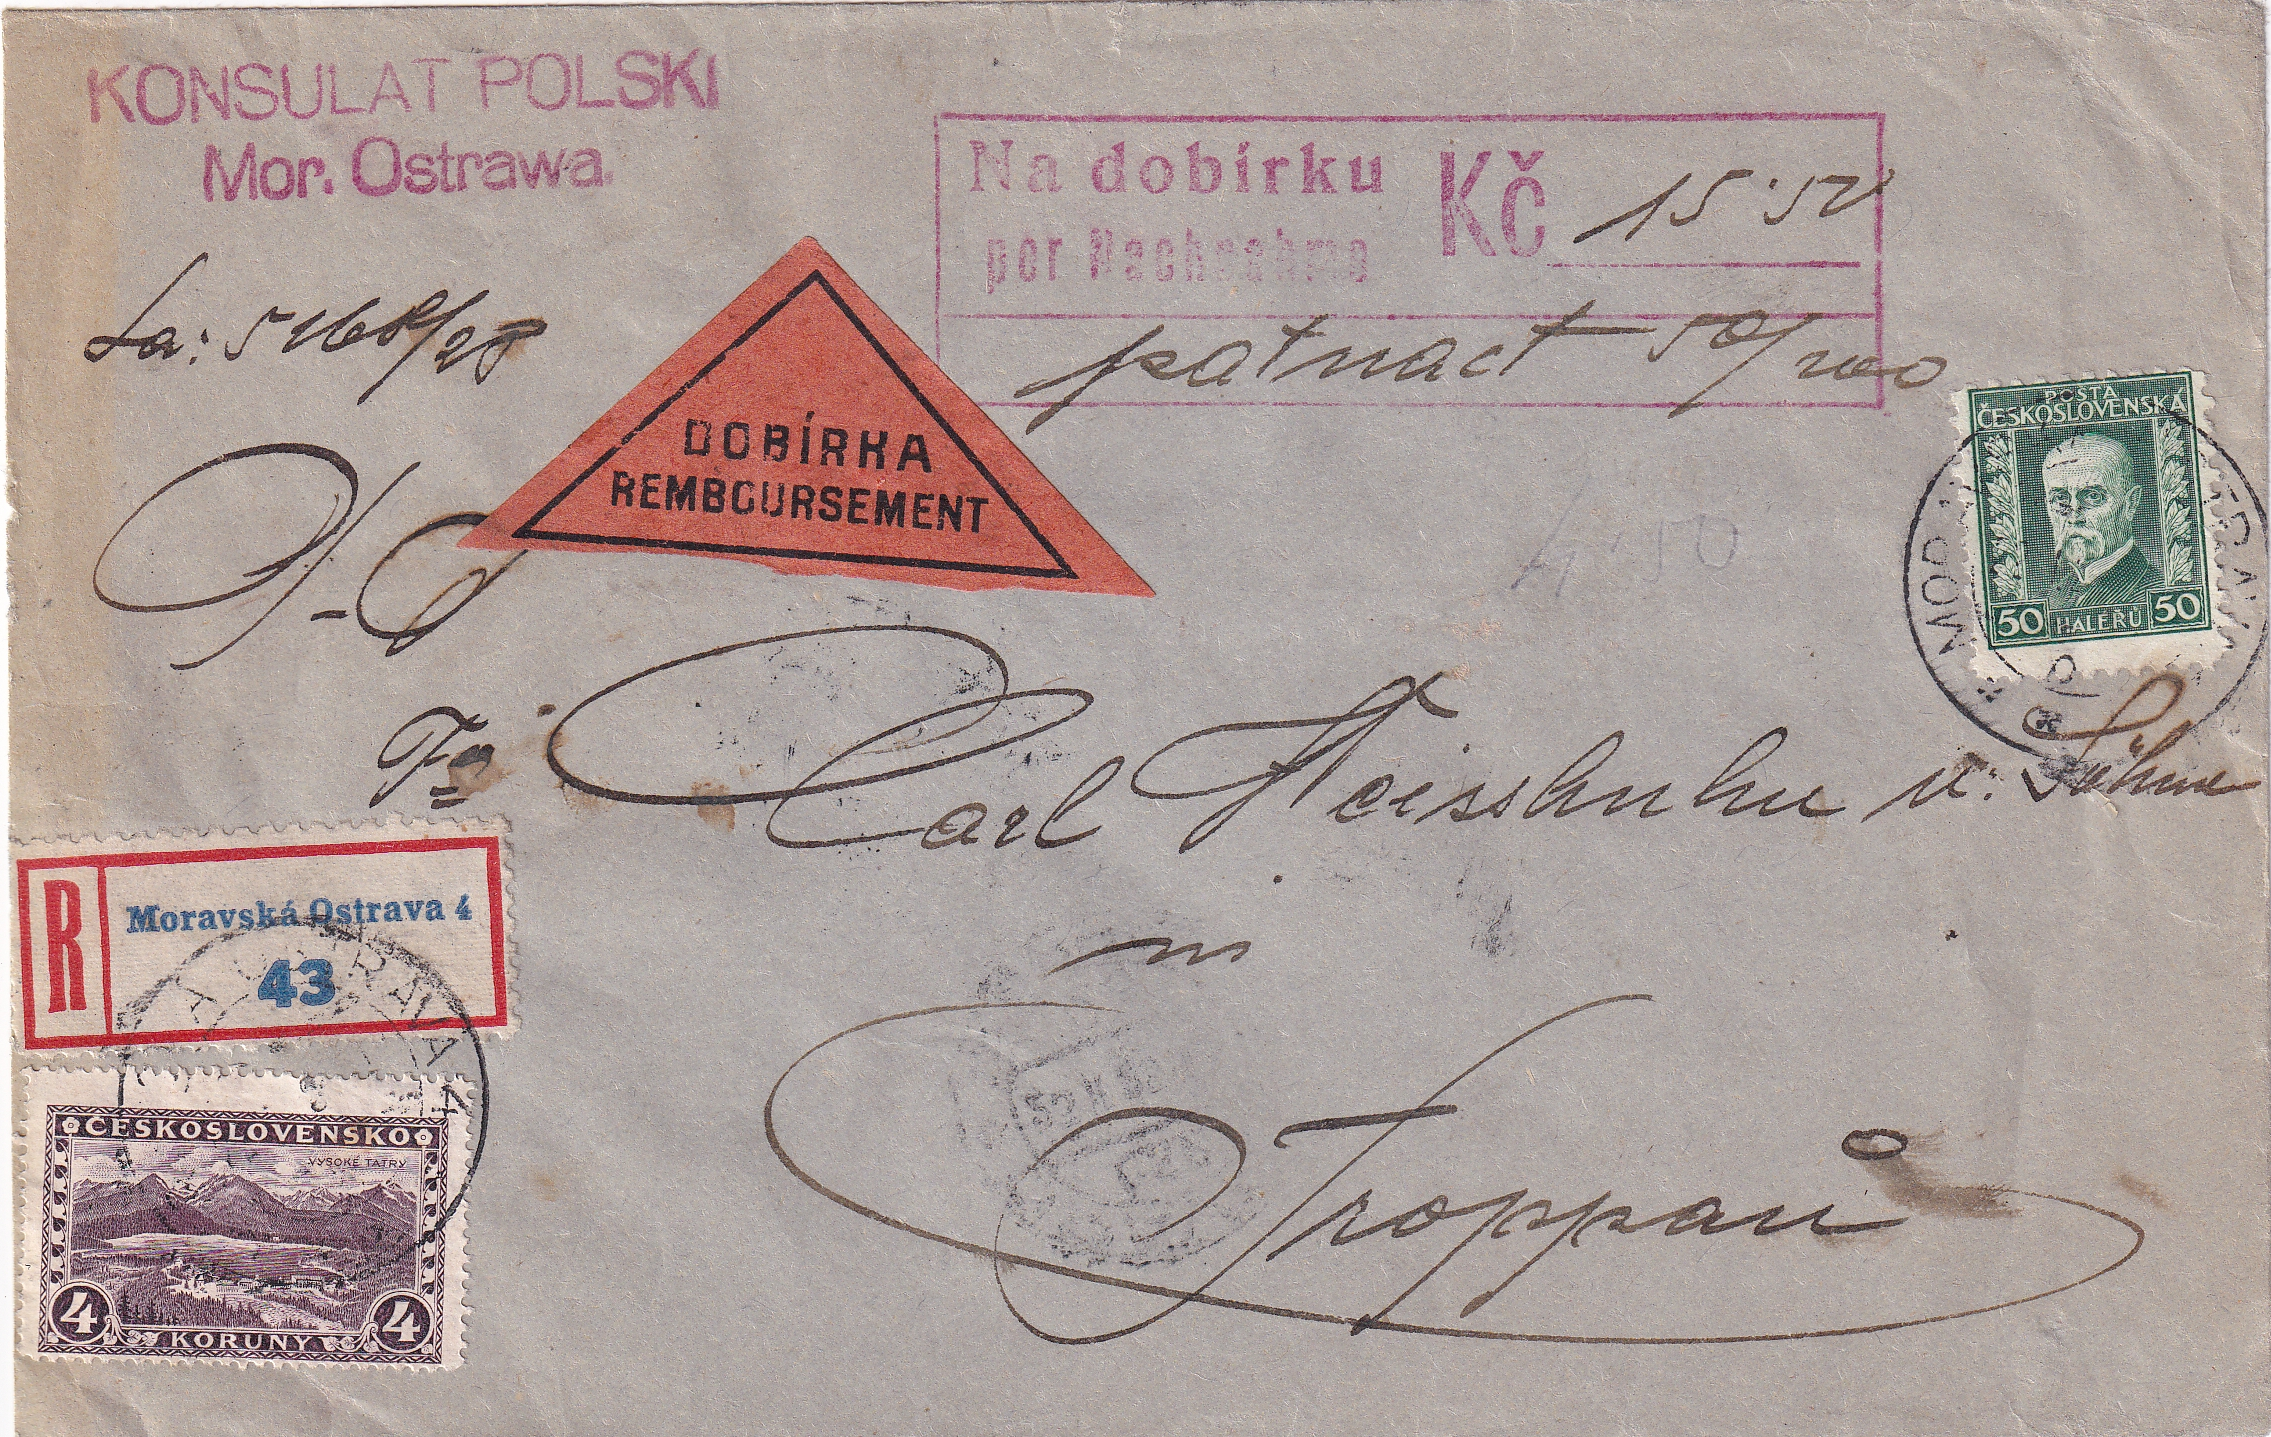 KONSULAT POLSKI
Mor. Ostrawa.
Na dobírku Kč 15·50
per Nachnahme
patnact 50/100
La: 5168/28
DOBÍRKA
REMBOURSEMENT
4·50
POŠTA
ČESKOSLOVENSKÁ
50 HALÉŘŮ 50
Fa
Carl Weisshuhn u: Söhne
in
Troppau
R
Moravská Ostrava 4
43
ČESKOSLOVENSKO
VYSOKÉ TATRY
4 KORUNY 4